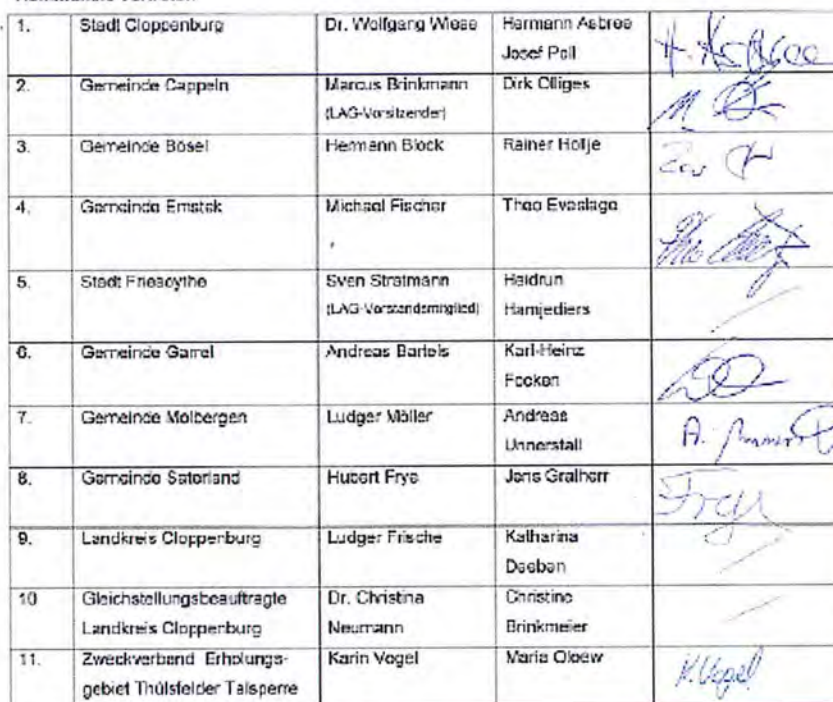 1. Stadt Cloppenburg Dr. Wolfgang Wiese Hermann Asbree
Josef Poll H. Asbree
2. Gemeinde Cappeln Marcus Brinkmann Dirk Olliges
(LAG-Vorsitzender)
3. Gemeinde Bösel Hermann Block Rainer Hollje
4. Gemeinde Emstek Michael Fischer Theo Eveslage
5. Stadt Friesoythe Sven Stratmann Heidrun
(LAG-Vorstandsmitglied) Hamjediers
6. Gemeinde Garrel Andreas Bartels Karl-Heinz
Focken
7. Gemeinde Molbergen Ludger Möller Andreas
Unnerstall A.
8. Gemeinde Saterland Hubert Frye Jens Gralherr
Frye
9. Landkreis Cloppenburg Ludger Frische Katharina
Deeben
10 Gleichstellungsbeauftragte Dr. Christina Christine
Landkreis Cloppenburg Neumann Brinkmeier
11. Zweckverband Erholungs- Karin Vogel Maria Oloew
gebiet Thülsfelder Talsperre K. Vogel